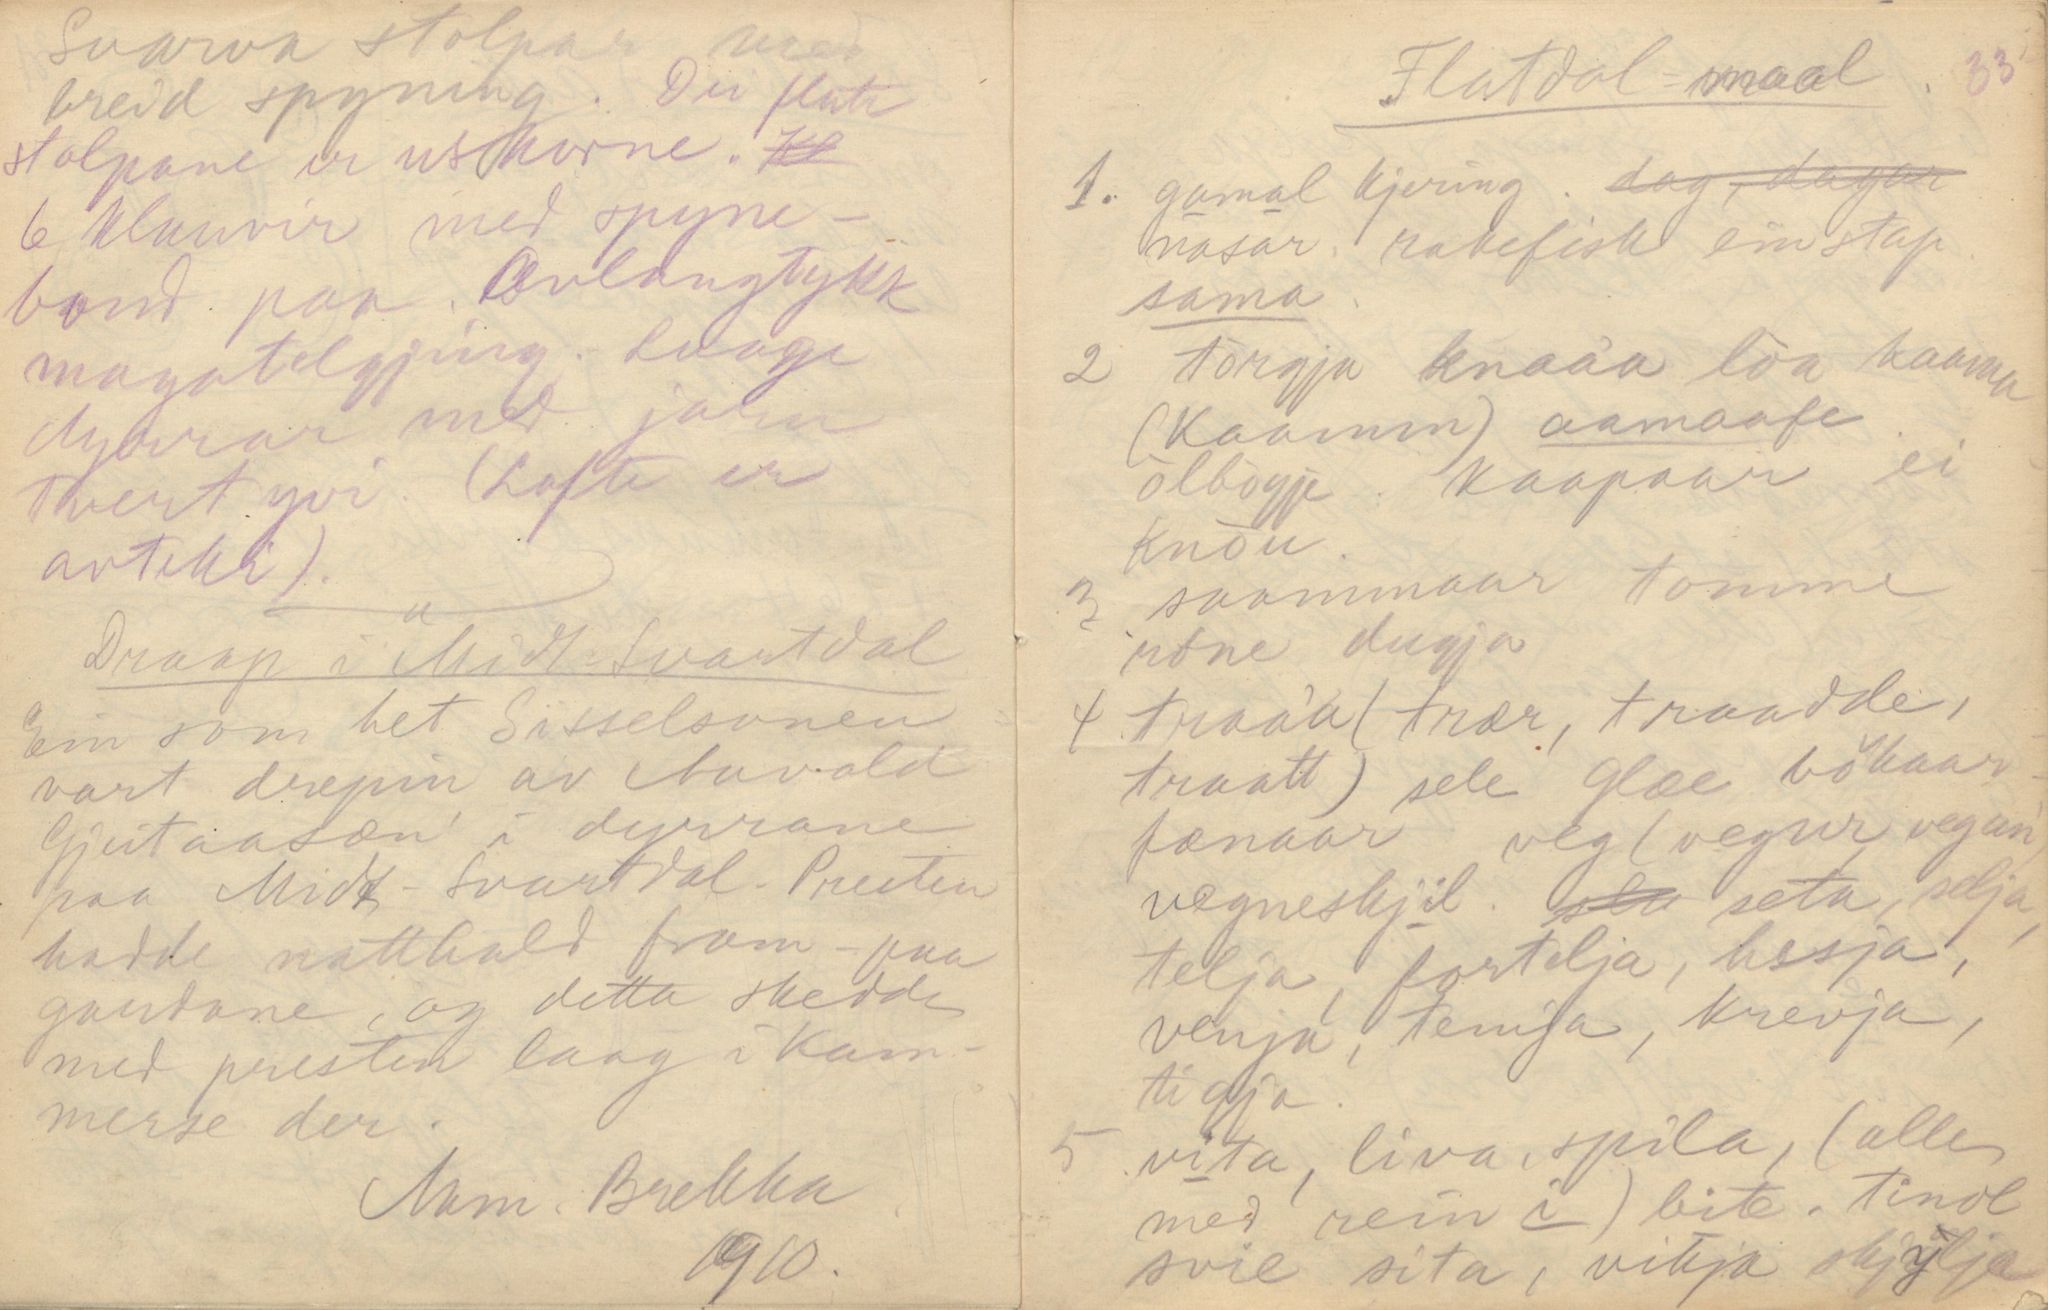 Svarva stolpar med
breid spyning. Dei flate
stolpane er uskorne. Kl
6 klauvir med spyne-
bond paa. Ovlangtykk
magatelgjing. Laage
dyrrar med jarn
tvert yvi. (Lofte er
avteke).
Draap i Midt-Svartdal
Ein som het Sisselsonen
vart drepin av Aavald
Gjeitaasæn i dyrrane
paa Midt-Svartdal. Presten
hadde natthald fram-paa
gardane, og detta skedde
med presten laag i Kam-
merse der.
Aam. Brekka
1910.
Flatdal-maal. 33
1. gamal kjering. dag, dagar
nasar. rakefisk einstap
sama.
2 torgja knaàa lòa haamaa
(kaamm) aamaafe
òlbogje. kaapaar ei
knòu.
3 saammaar tomme
ròne dugja
4 traàa (trær, traadde,
traatt) sele glæe bòkaar
fænaar veg (vegur, vegain)
vegneskjil. sla seta, selja,
telja, fortelja, hesja,
venja, temja, krevja,
tigja.
5 vita, liva, spila, (alle
med rein i) bite. tindl
svie sita, vikja skjylja